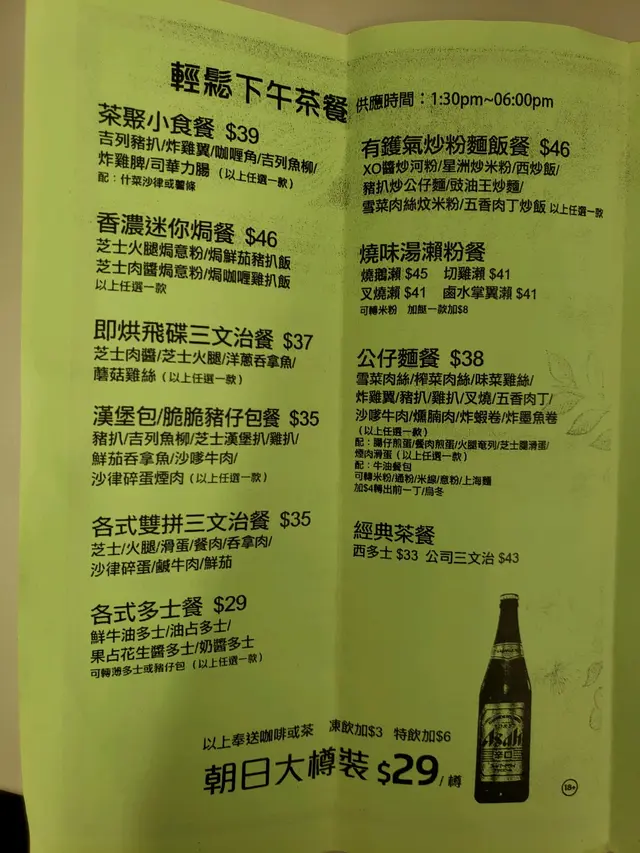 輕鬆下午茶餐
供應時間：1:30pm~06:00pm
茶聚小食餐 $39
吉列豬扒/炸雞翼/咖喱角/吉列魚柳/
炸雞脾/司華力腸（以上任選一款）
配：什菜沙律或薯條
香濃迷你焗餐 $46
芝士火腿焗意粉/焗鮮茄豬扒飯
芝士肉醬焗意粉/焗咖喱雞扒飯
以上任選一款
即烘飛碟三文治餐 $37
芝士肉醬/芝士火腿/洋蔥吞拿魚/
蘑菇雞絲（以上任選一款）
漢堡包/脆脆豬仔包餐 $35
豬扒/吉列魚柳/芝士漢堡扒/雞扒/
鮮茄吞拿魚/沙嗲牛肉/
沙律碎蛋煙肉（以上任選一款）
各式雙拼三文治餐 $35
芝士/火腿/滑蛋/餐肉/吞拿肉/
沙律碎蛋/鹹牛肉/鮮茄
各式多士餐 $29
鮮牛油多士/油占多士/
果占花生醬多士/奶醬多士
可轉薄多士或豬仔包（以上任選一款）
有鑊氣炒粉麵飯餐 $46
XO醬炒河粉/星洲炒米粉/西炒飯/
豬扒炒公仔麵/豉油王炒麵/
雪菜肉絲炆米粉/五香肉丁炒飯 以上任選一款
燒味湯瀨粉餐
燒鵝瀨 $45 切雞瀨 $41
叉燒瀨 $41 鹵水掌翼瀨 $41
可轉米粉 加餸一款加$8
公仔麵餐 $38
雪菜肉絲/榨菜肉絲/味菜雞絲/
炸雞翼/豬扒/雞扒/叉燒/五香肉丁/
沙嗲牛肉/燻腩肉/炸蝦卷/炸墨魚卷
（以上任選一款）
配：腸仔煎蛋/餐肉煎蛋/火腿奄列/芝士腿滑蛋/
煙肉滑蛋（以上任選一款）
配：牛油餐包
可轉米粉/通粉/米線/意粉/上海麵
加$4轉出前一丁/烏冬
經典茶餐
西多士 $33 公司三文治 $43
以上奉送咖啡或茶 凍飲加$3 特飲加$6
朝日大樽裝 $29/樽
Asahi
辛口
18+